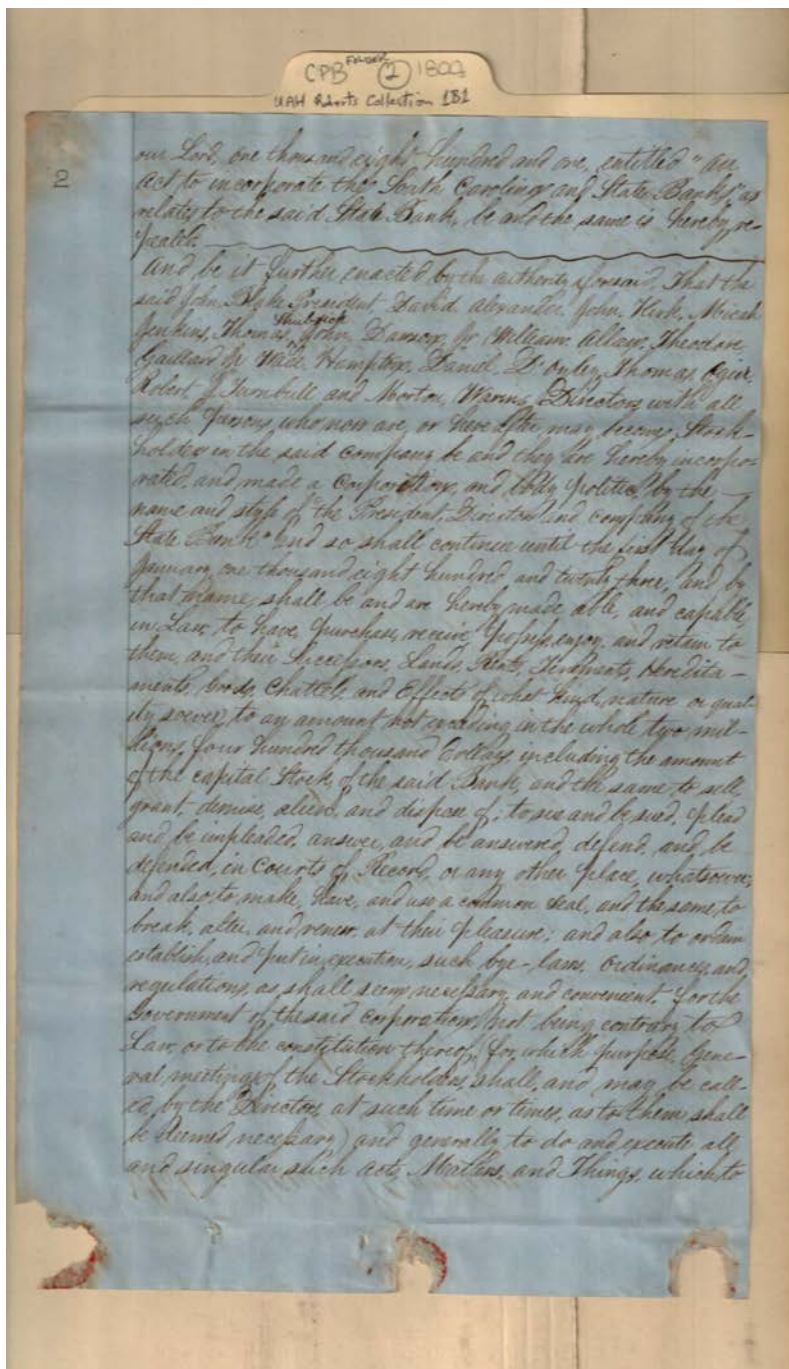 CPB FOLDER 2 1802
UAH Roberts Collection 1B1
2
our Lord, one thousand eight hundred and one, entitled "An
Act to incorporate the South Carolina and State Banks," as
relates to the said State Bank, be and the same is hereby re-
pealed.
And be it further enacted by the authority aforesaid, That the
said John Blake President, David Alexander, John Kirk, Micah
Jenkins, Thomas Shubrick, John Dawson, Jr William Allan, Theodore
Gaillard Jr Wade Hampton, Daniel D'Oyley, Thomas Ogier,
Robert J Turnbull and Morton Waring Directors, with all
such Persons, who now are, or hereafter may become Stock-
holders in the said Company, be and they are hereby incorpo-
rated, and made a Corporation, and body politic, by the
name and style of "the President, Directors and company of the
State Bank" and so shall continue until the first day of
January, one thousand eight hundred and twenty three, and by
that name, shall be and are hereby made able, and capable
in Law, to have, purchase, receive, possess, enjoy, and retain to
them, and their Successors, Lands, Rents, Tenements, Heredita-
ments, Goods, Chattels and Effects of what kind, nature or qual-
ity soever, to an amount not exceeding in the whole two mil-
lions, four hundred thousand Dollars, including the amount
of the capital Stock, of the said Bank, and the same to sell,
grant, demise, alien, and dispose of; to sue and be sued, plead
and be impleaded, answer, and be answered, defend, and be
defended, in Courts of Record, or any other place, whatsoever;
and also, to make, have, and use a common Seal, and the same, to
break, alter, and renew, at their pleasure; and also to ordain
establish, and put in execution, such bye-laws, Ordinances, and,
regulations, as shall seem necessary, and convenient, for the
Government of the said Corporation, not being contrary to
Law, or to the constitution thereof, (for which purpose, Gene-
ral, meetings of the Stockholders, shall, and may be call-
ed, by the Directors, at such time or times, as to them shall
be deemed necessary) and generally to do and execute all
and singular such acts, Matters, and Things, which to